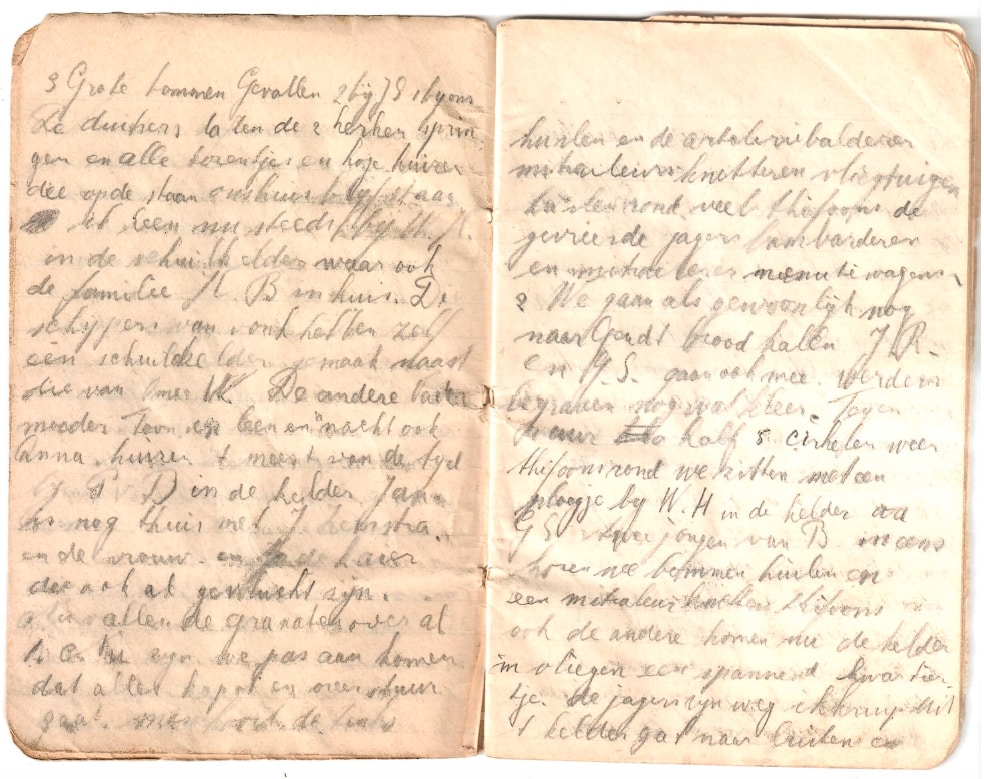 3 Grote bommen Gevallen 2 by J S 1 by ons
De duitsers laten de 2 kerken sprin
gen en alle torentjes en hoje huizen
die op de staan ons huis blyft staan
ik ben nu steeds by
in de schuilkelder waar ook
de familie v. B in huis. De
schippers van hebben zelf
een schuilkelder gemaak naast
die van Omer W. De andere Vader
moeder Toon en Leen en "nacht ook
Anna, huizen t meest van de tyd
by P D in de kelder Jan
is nog thuis met J
en de vrouw en
die ook al gevlucht zyn.
vallen de granaten over al
zyn we pas aan komen
dat alles kapot en over stuur
gaat.
huilen en de artelerie balderen
mitraleurs knetteren vliegtuigen
huilen rond veel thifoons de
gevreesde jagers bombarderen
en menute wagens
2 We gaan als gewoonlijk nog
naar Gendt brood halen J R.
en G. S. gaan ook mee. werden
begraven nog wat kleer. Tegen
half 5 cirkelen weer
thifoons rond we zitten met een
ploegje by W. H in de kelder
G S twee jongen van B ineens
horen we bommen huilen en
een mitraleur thifoons
ook de andere komen nu de kelder
in vliegen een spannend kwartier
tje. de jagers zyn weg ik kruip uit
t kelder gat naar buiten en